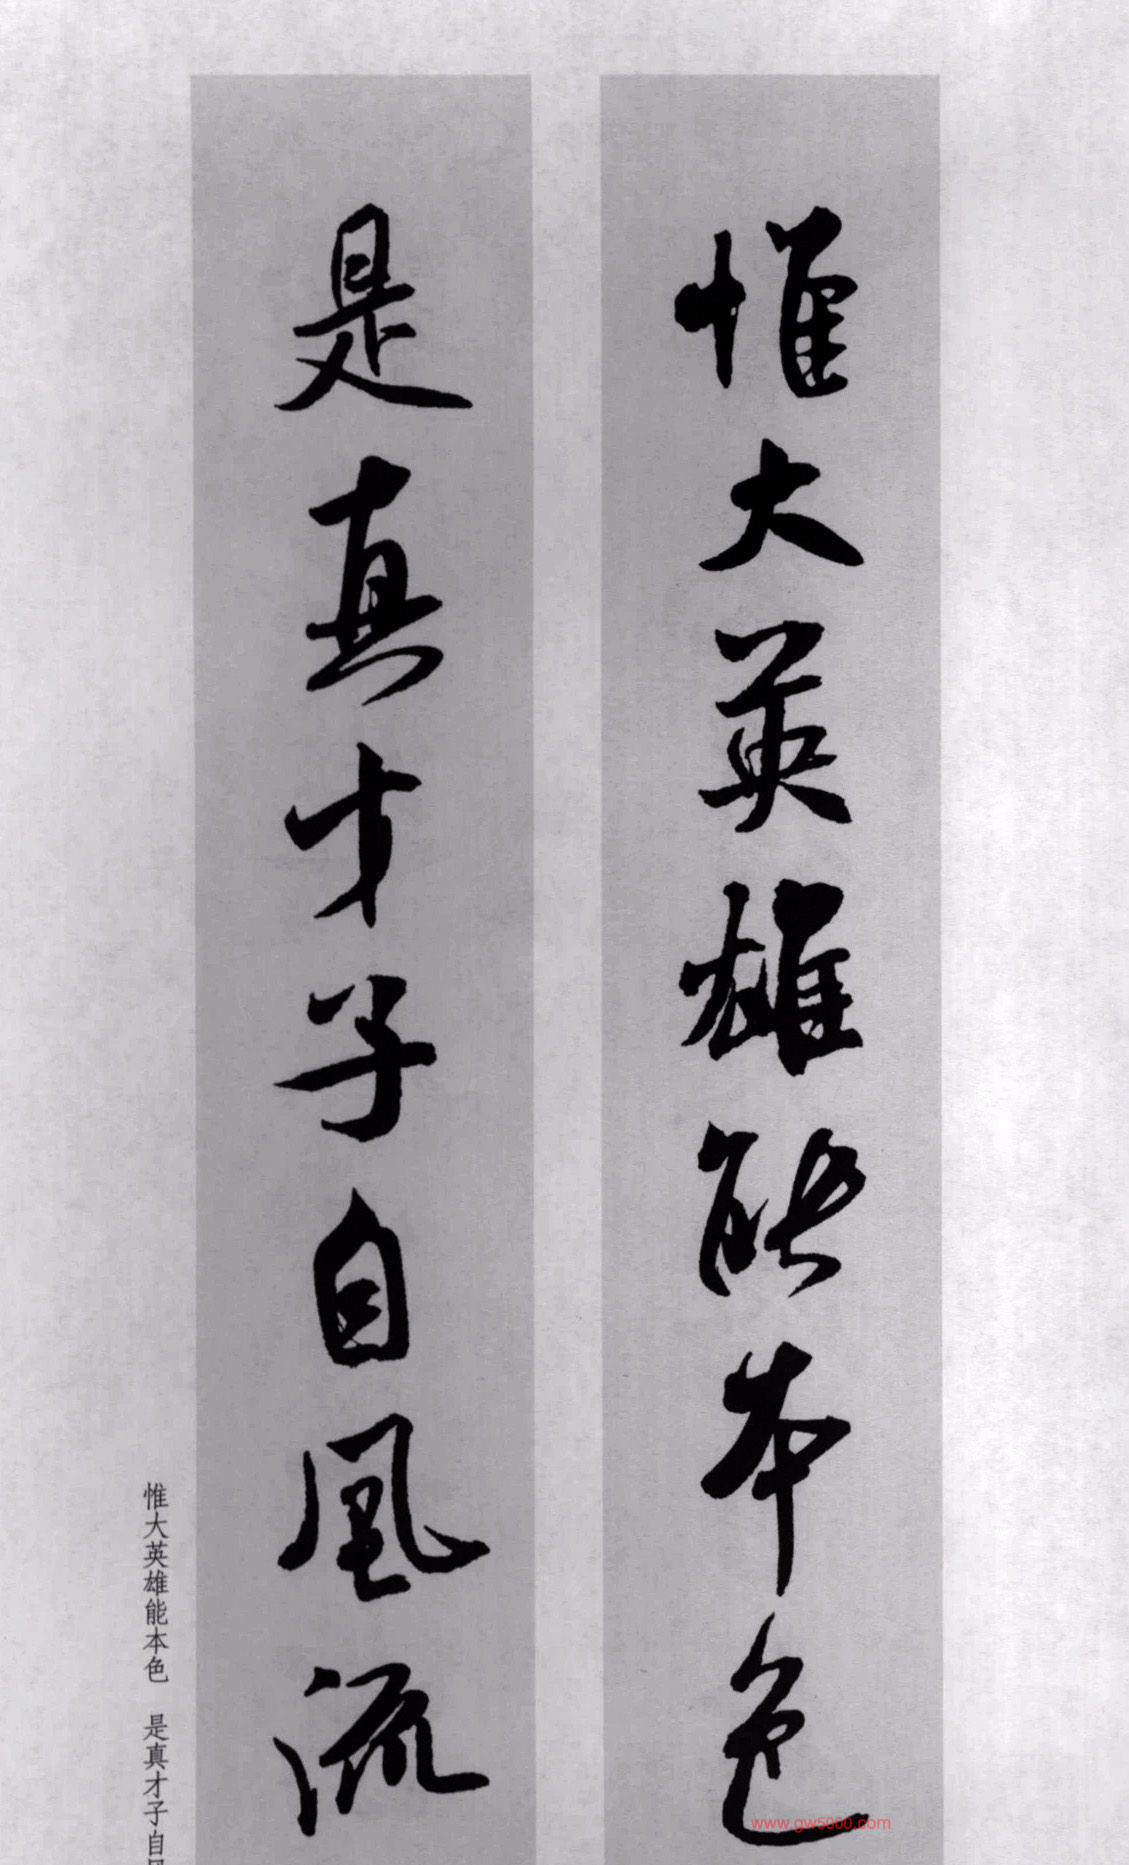 惟大英雄能本色
是真才子自風流
惟大英雄能本色　是真才子自
www.gw5000.com